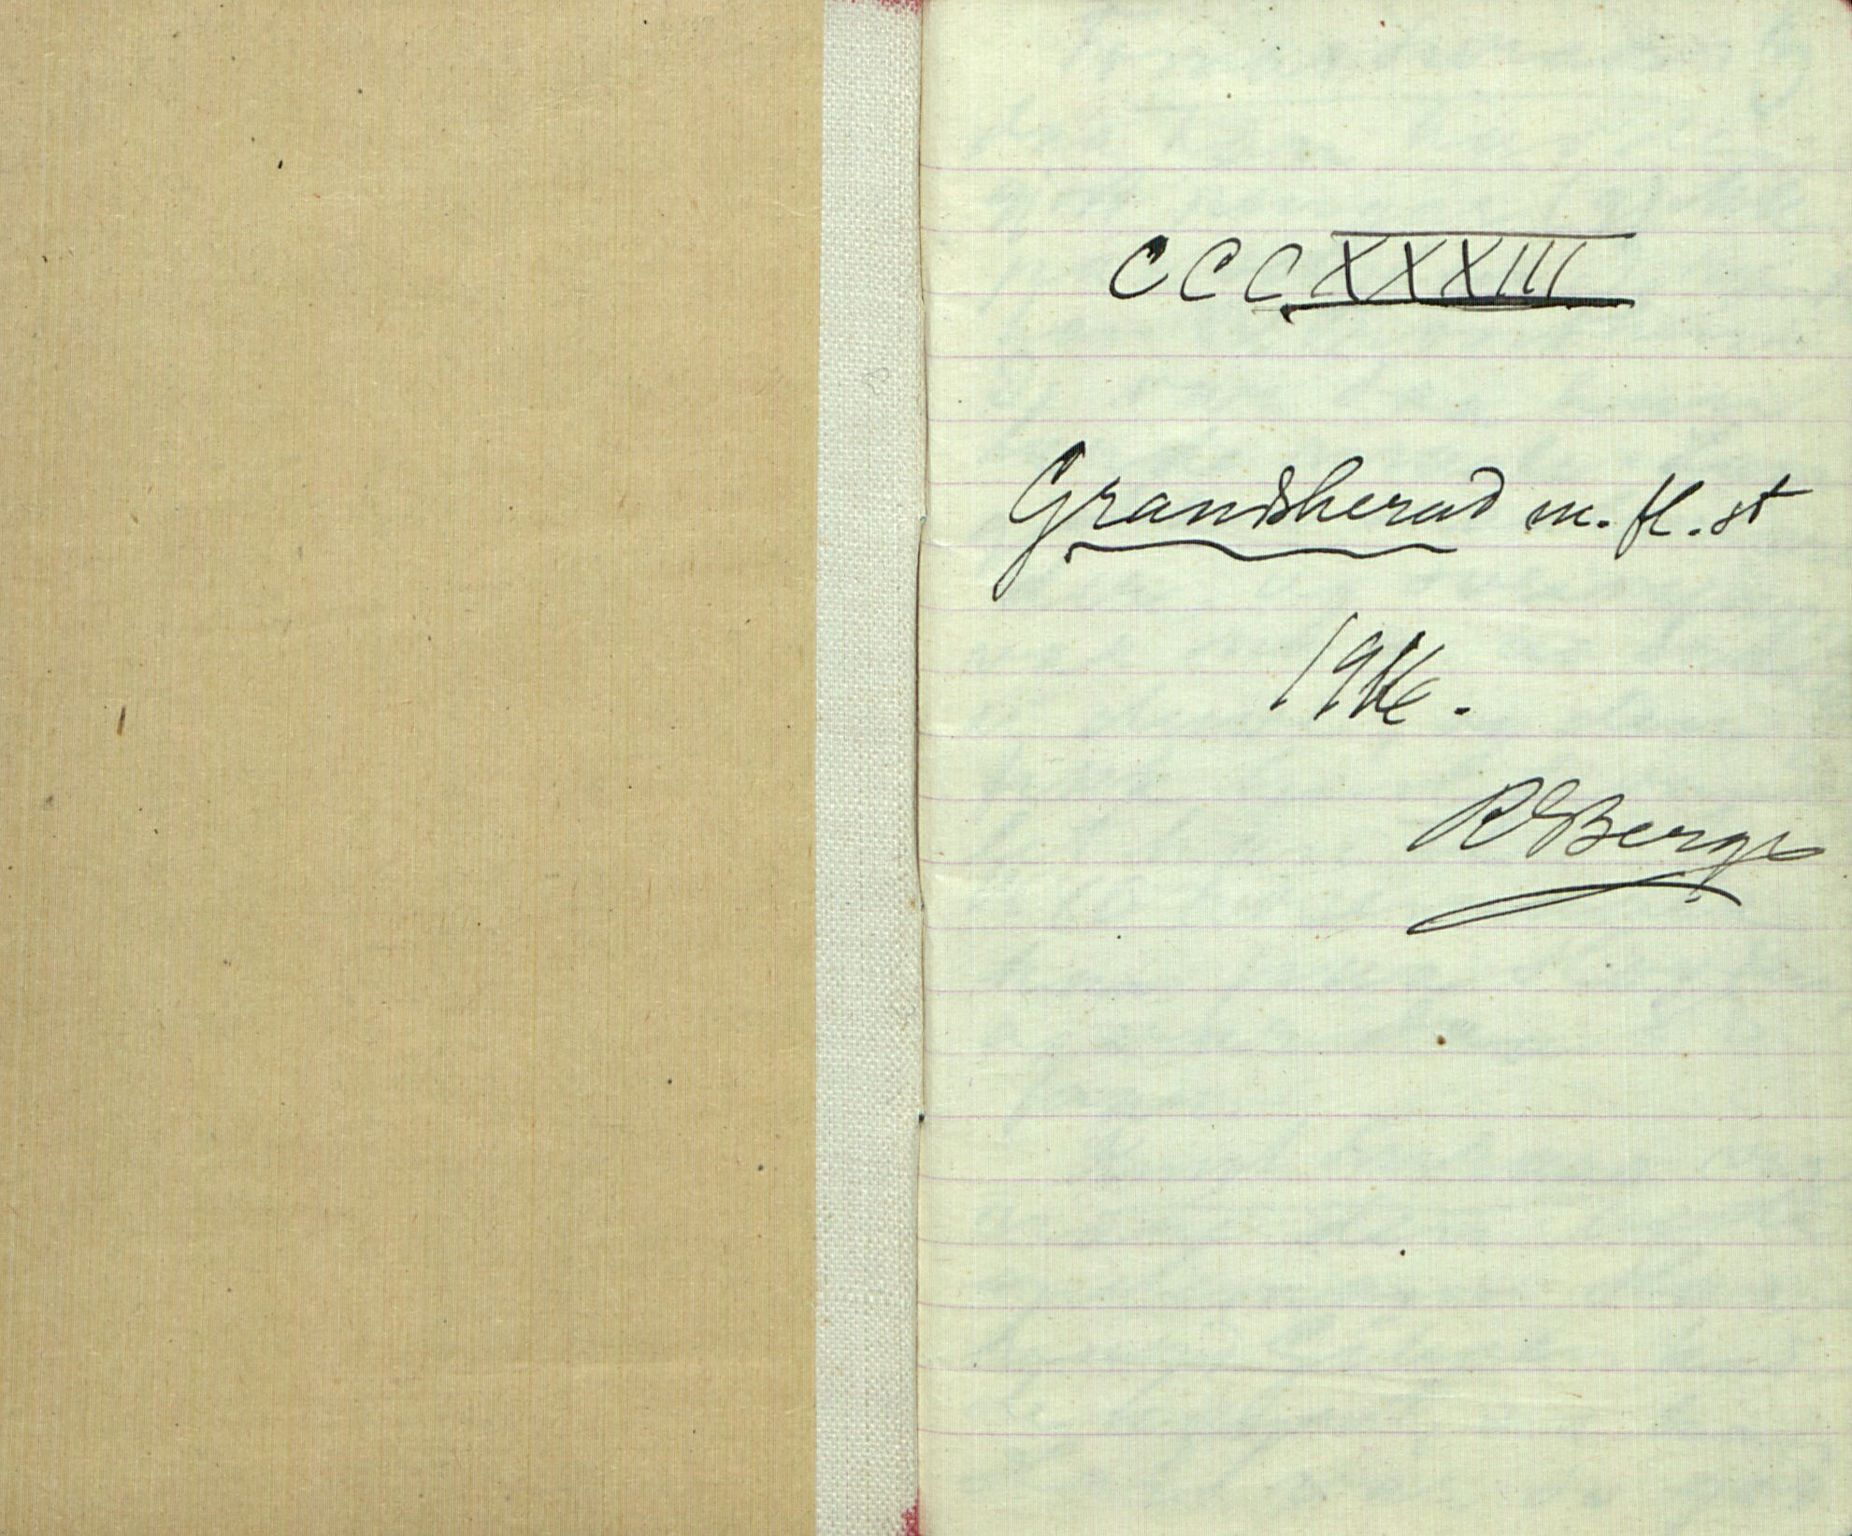 CCCXXXIII
Gransherad m. fl. st
1916.
RSBerge